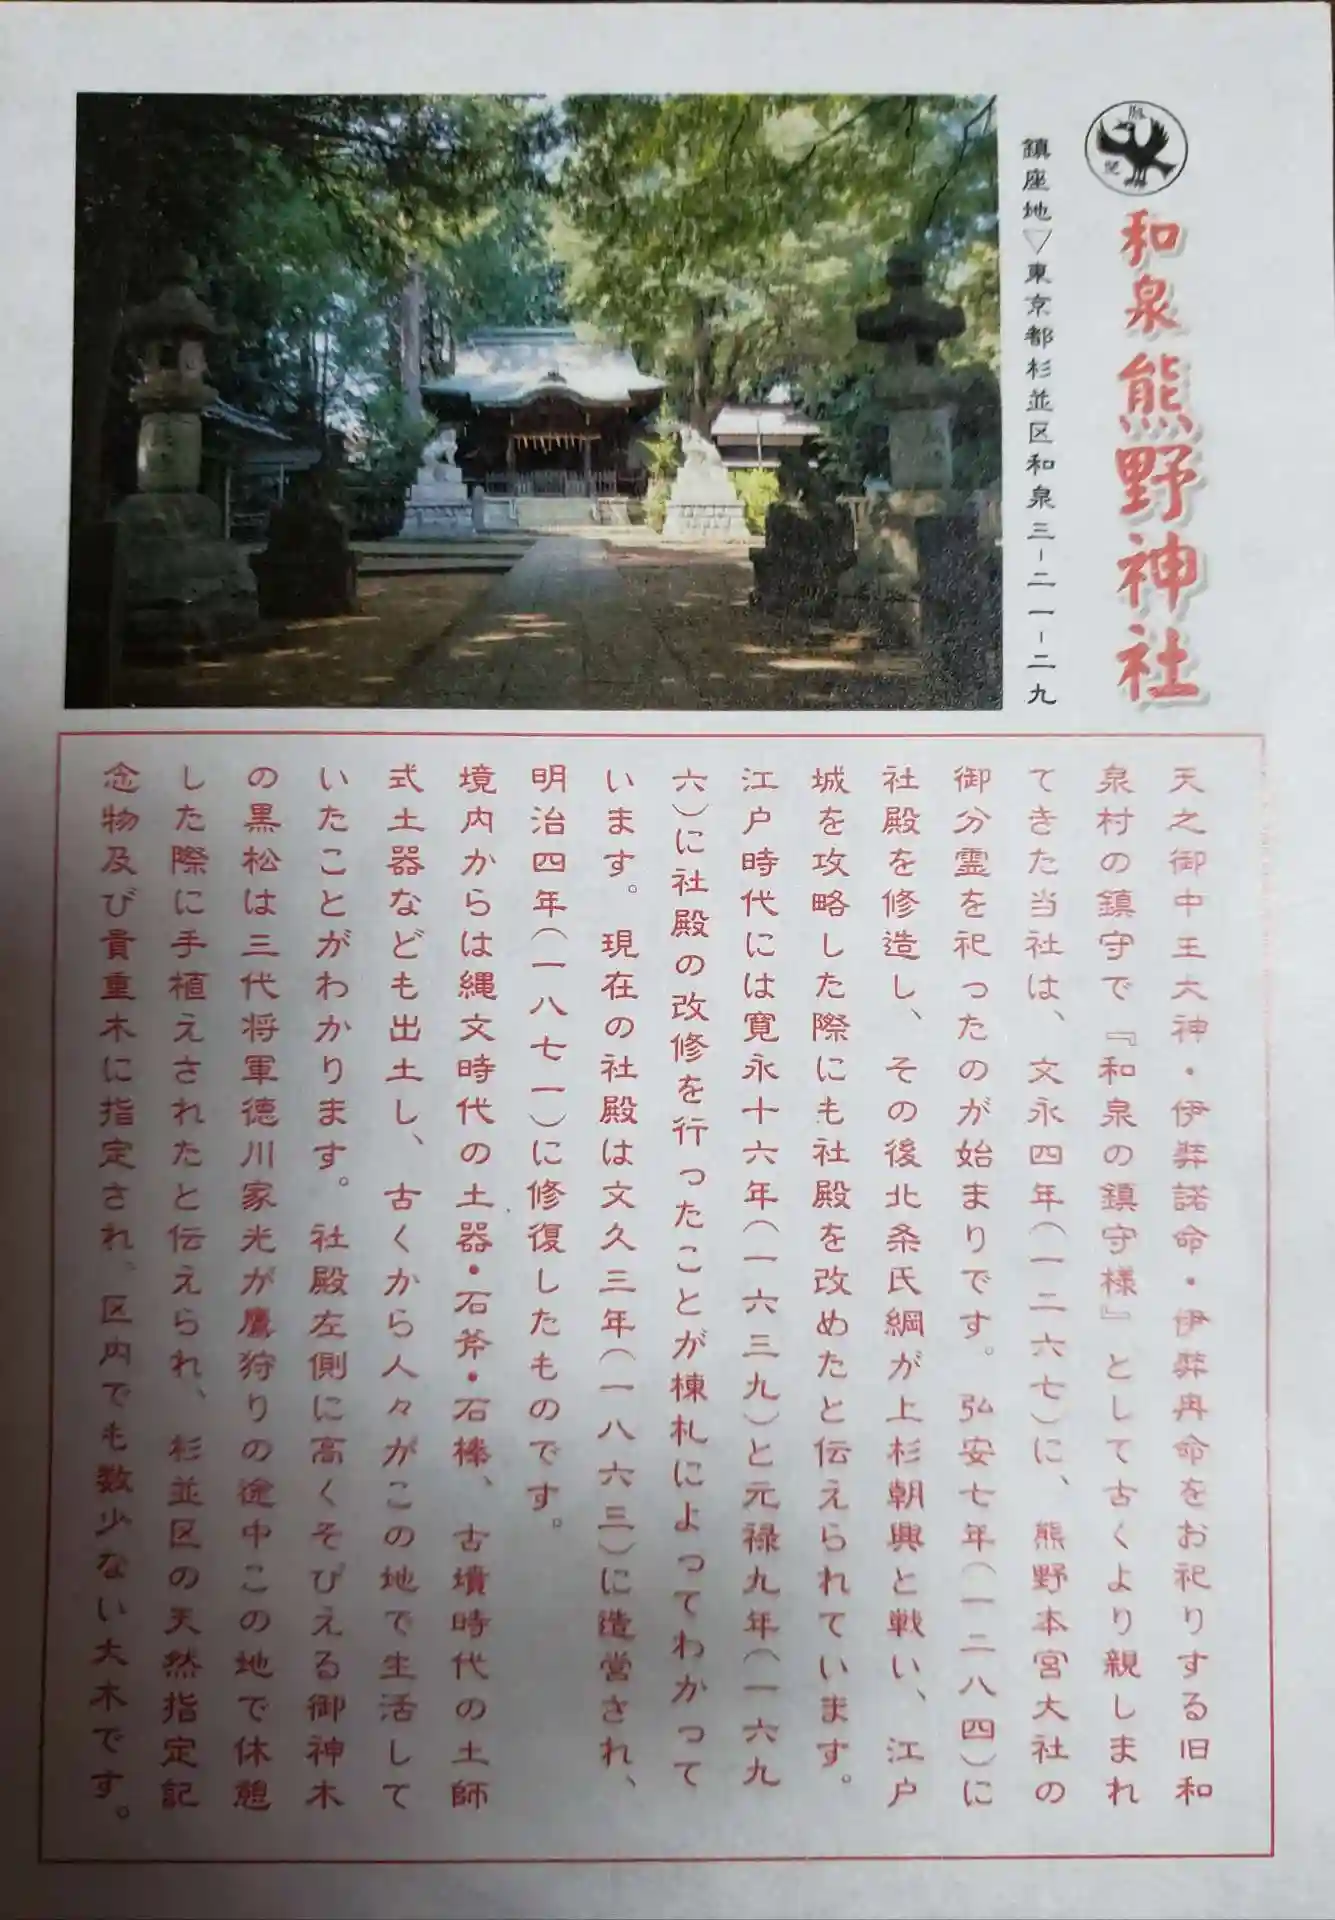 和泉熊野神社
鎮座地▽東京都杉並区和泉三-二一-二九
天之御中主大神・伊弉諾命・伊弉冉命をお祀りする旧和
泉村の鎮守で『和泉の鎮守様』として古くより親しまれ
てきた当社は、文永四年(一二六七)に、熊野本宮大社の
御分霊を祀ったのが始まりです。弘安七年(一二八四)に
社殿を修造し、その後北条氏綱が上杉朝興と戦い、江戸
城を攻略した際にも社殿を改めたと伝えられています。
江戸時代には寛永十六年(一六三九)と元禄九年(一六九
六)に社殿の改修を行ったことが棟札によってわかって
います。現在の社殿は文久三年(一八六三)に造営され、
明治四年(一八七一)に修復したものです。
境内からは縄文時代の土器・石斧・石棒、古墳時代の土師
式土器なども出土し、古くから人々がこの地で生活して
いたことがわかります。社殿左側に高くそびえる御神木
の黒松は三代将軍徳川家光が鷹狩りの途中この地で休憩
した際に手植えされたと伝えられ、杉並区の天然指定記
念物及び貴重木に指定され、区内でも数少ない大木です。